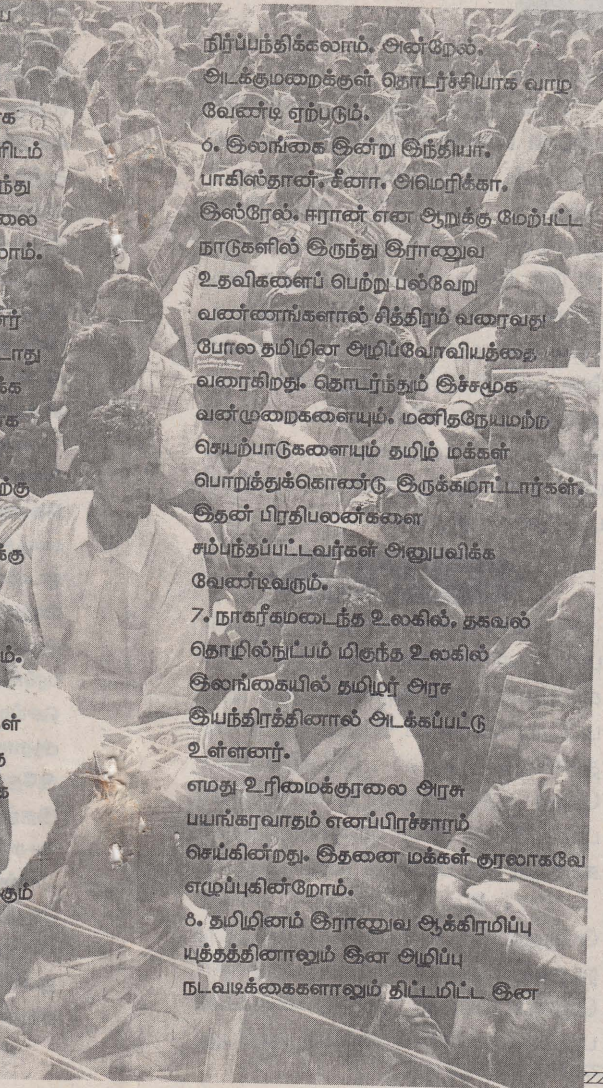 ய
ாக
ரிடம்
ந்து
லை
லாம்.
னர்
டாது
க்க
ாக
ற்கு
க்கு
ம்.
ள்
த
க
கும்
நிர்ப்பந்திக்கலாம். அன்றேல்.
அடக்குமறைக்குள் தொடர்ச்சியாக வாழ
வேண்டி ஏற்படும்.
6. இலங்கை இன்று இந்தியா.
பாகிஸ்தான். சீனா. அமெரிக்கா.
இஸ்ரேல். ஈரான் என ஆறுக்கு மேற்பட்ட
நாடுகளில் இருந்து இராணுவ
உதவிகளைப் பெற்று பல்வேறு
வண்ணங்களால் சித்திரம் வரைவது
போல தமிழின அழிப்வோவியத்தை
வரைகிறது. தொடர்ந்தும் இச்சமூக
வன்முறைகளையும். மனிதநேயமற்ற
செயற்பாடுகளையும் தமிழ் மக்கள்
பொறுத்துக்கொண்டு இருக்கமாட்டார்கள்.
இதன் பிரதிபலன்களை
சம்பந்தப்பட்டவர்கள் அனுபவிக்க
வேண்டிவரும்.
7. நாகரீகமடைந்த உலகில். தகவல்
தொழில்நுட்பம் மிகுந்த உலகில்
இலங்கையில் தமிழர் அரச
இயந்திரத்தினால் அடக்கப்பட்டு
உள்ளனர்.
எமது உரிமைக்குரலை அரசு
பயங்கரவாதம் எனப்பிரச்சாரம்
செய்கின்றது. இதனை மக்கள் குரலாகவே
எழுப்புகின்றோம்.
8. தமிழினம் இராணுவ ஆக்கிரமிப்பு
யுத்தத்தினாலும் இன அழிப்பு
நடவடிக்கைகளாலும் திட்டமிட்ட இன